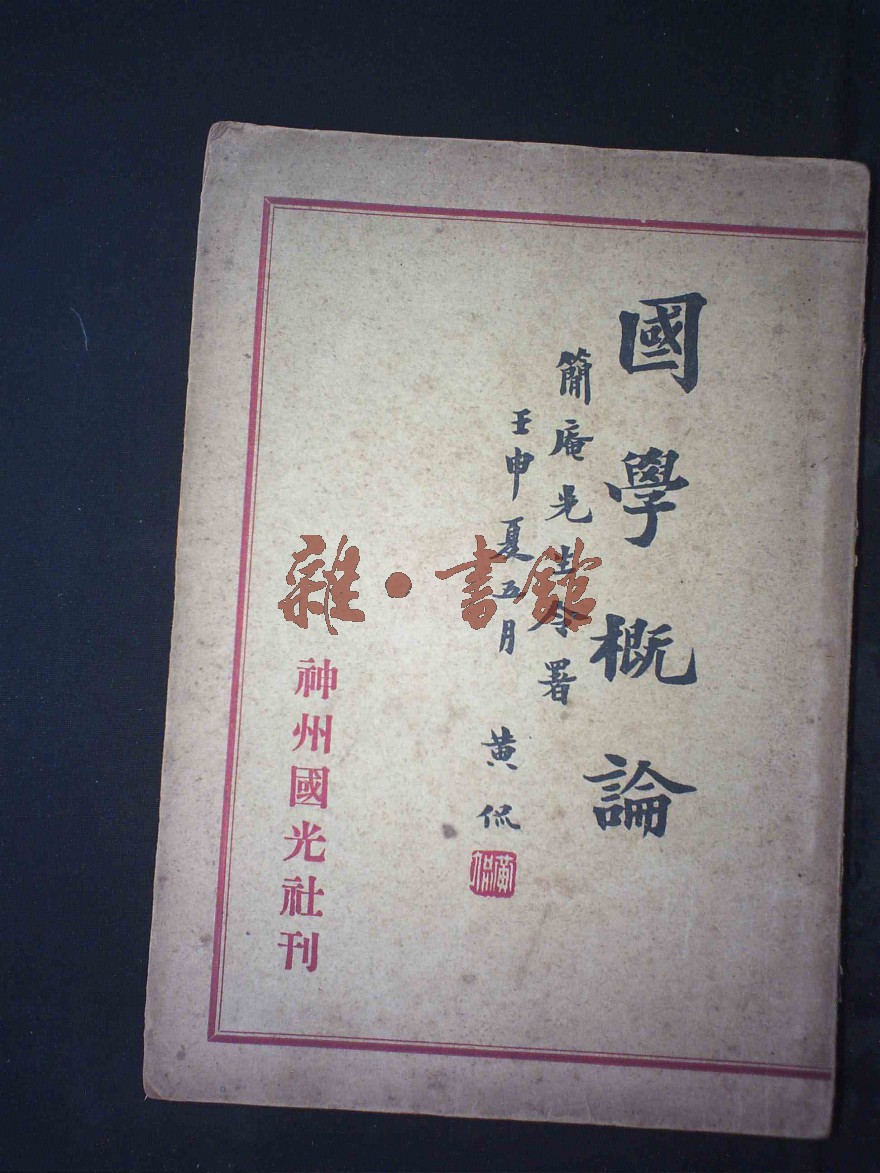 國學概論
簡庵先生令署
壬申夏五月
黃侃
黃侃
神州國光社刊
雜·書館